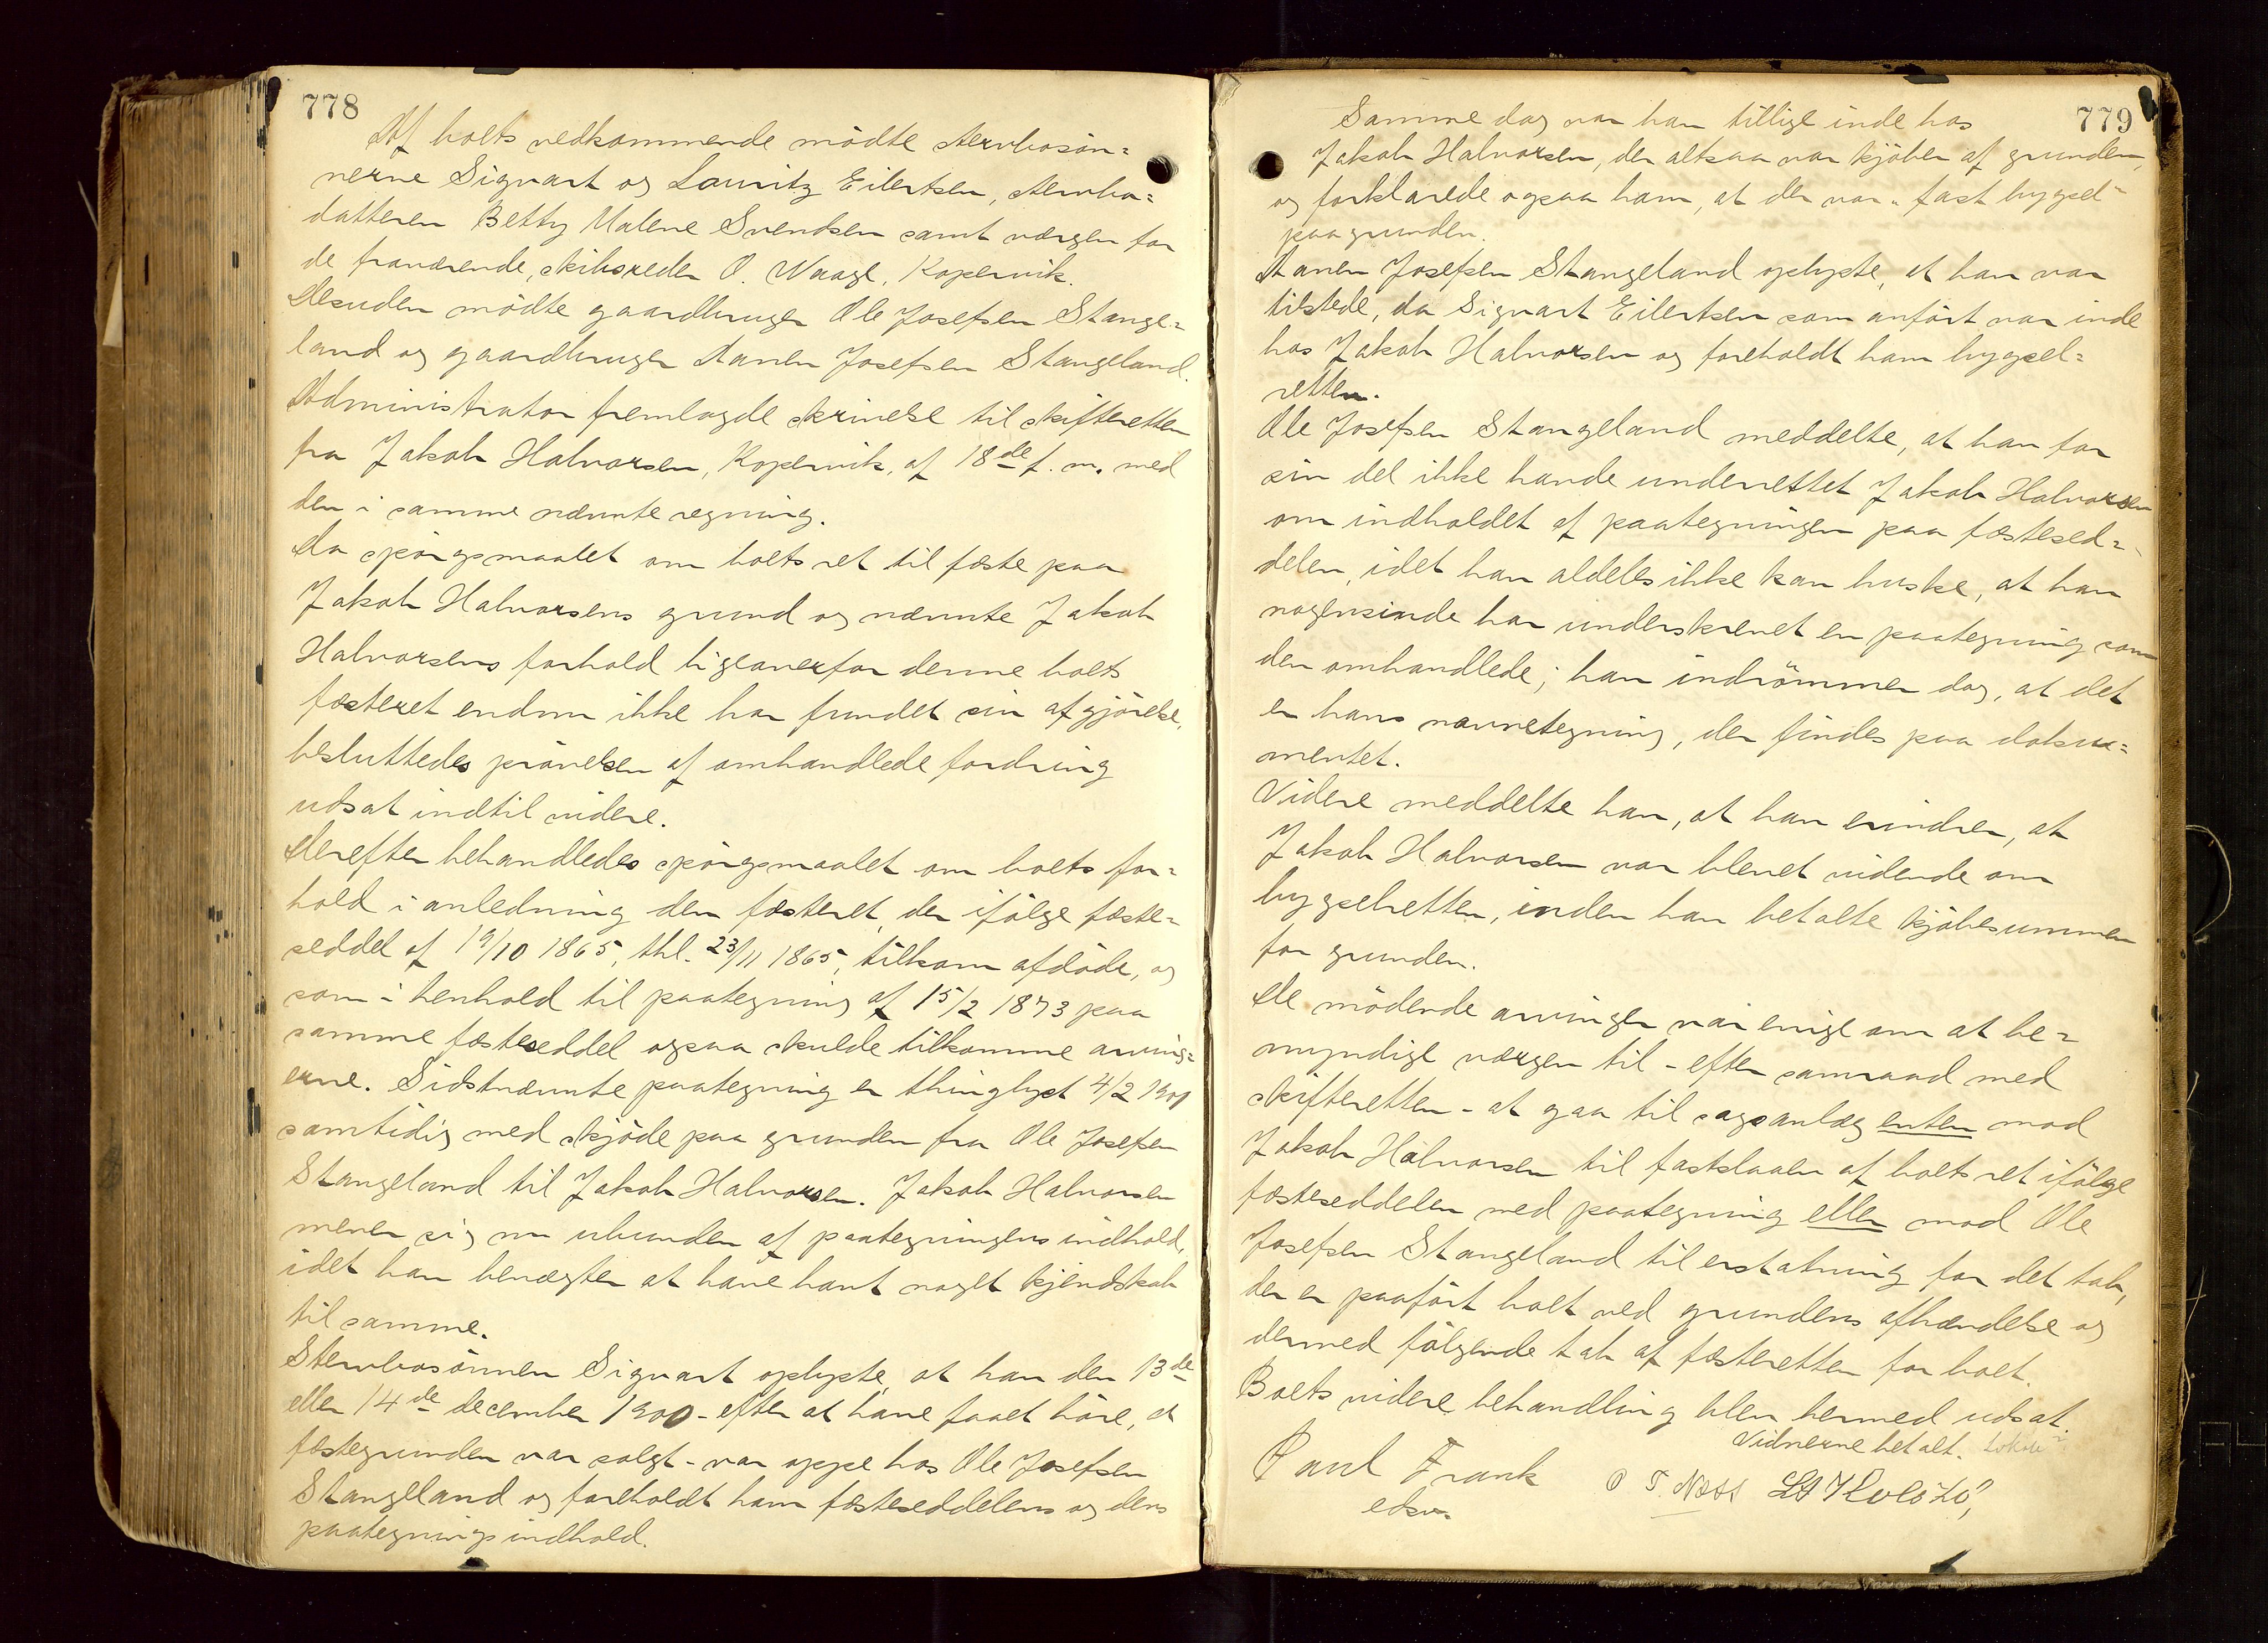 778
Af boets vedkommende mödte stervbosön=
nerne Sigvart og Lauritz Eilertsen, stervbo=
datteren Betty Malene Svendsen samt vergen for
de fraværende, skibsreder O. Waage, Kopervik.
Desuden mödte gaardbruger Ole Josefsen Stange=
land og gaardbruger Aanen Josefsen Stangeland.
Administrator fremlagde skrivelse til skifteretten
fra Jakob Halvorsen, Kopervik, af 18de f. m. med
den i samme nævnte regning.
Da spörgsmaalet om boets ret til feste paa
Jakob Halvorsens grund og nævnte Jakob
Halvorsens forhold ligeoverfor denne boets
festeret endnu ikke har fundet sin afgjörelse,
besluttedes prövelsen af omhandlede fordring
udsat indtil videre.
Derefter behandledes spörgsmaalet om boets for=
hold i anledning den festeret, der ifölge feste=
seddel af 19/10 1865, thl. 23/11 1865, tilkom afdöde, og
som i henhold til paategning af 15/2 1873 paa
samme festeseddel ogsaa skulde tilkomme arving=
erne. Sidstnævnte paategning er thinglyst 4/2 1901
samtidig med skjöde paa grunden fra Ole Josefsen
Stangeland til Jakob Halvorsen. Jakob Halvorsen
mener sig nu ubunden af paategningens indhold,
idet han benegter at have havt noget kjendskab
til samme.
Stervbosönnen Sigvart oplyste, at han den 13de
eller 14de december 1900 - efter at have faaet höre, at
festegrunden var solgt - var oppe hos Ole Josefsen
Stangeland og foreholdt ham festeseddelens og dens
paategnings indhold.
779
Samme dag var han tillige inde hos
Jakob Halvorsen, der altsaa var kjöber af grunden,
og forklarede ogsaa ham, at der var "fast bygsel"
paa grunden.
Aanen Josefsen Stangeland oplyste, at han var
tilstede, da Sigvart Eilertsen som anfört var inde
hos Jakob Halvorsen og foreholdt ham bygsel=
retten.
Ole Josefsen Stangeland meddelte, at han for
sin del ikke havde underrettet Jakob Halvorsen
om indholdet af paategningen paa festesed=
delen, idet han aldeles ikke kan huske, at han
nogensinde har underskrevet en paategning som
den omhandlede; han indrömmer dog, at det
er hans navnetegning, der findes paa doku=
mentet.
Videre meddelte han, at han erindrer, at
Jakob Halvorsen var blevet vidende om
bygselretten, inden han betalte kjöbesummen
for grunden.
De mödende arvinger var enige om at be=
myndige vergen til - efter samraad med
skifteretten - at gaa til sagsanleg enten mod
Jakob Halvorsen til fastslaaen af boets ret ifölge
festeseddelen med paategning eller mod Ole
Josefsen Stangeland til erstatning for det tab,
der er paafört boet ved grundens afhændelse og
dermed fölgende tab af festeretten for boet.
Boets videre behandling blev hermed udsat.
Vidnerne betalt.
Paul Frank O T. Næss
edsv.